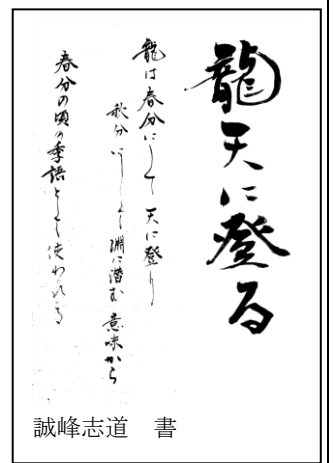 龍天に登る
龍は春分にして天に登り
秋分にして淵に潜む 意味から
春分の頃の季語として使われる
誠峰志道 書